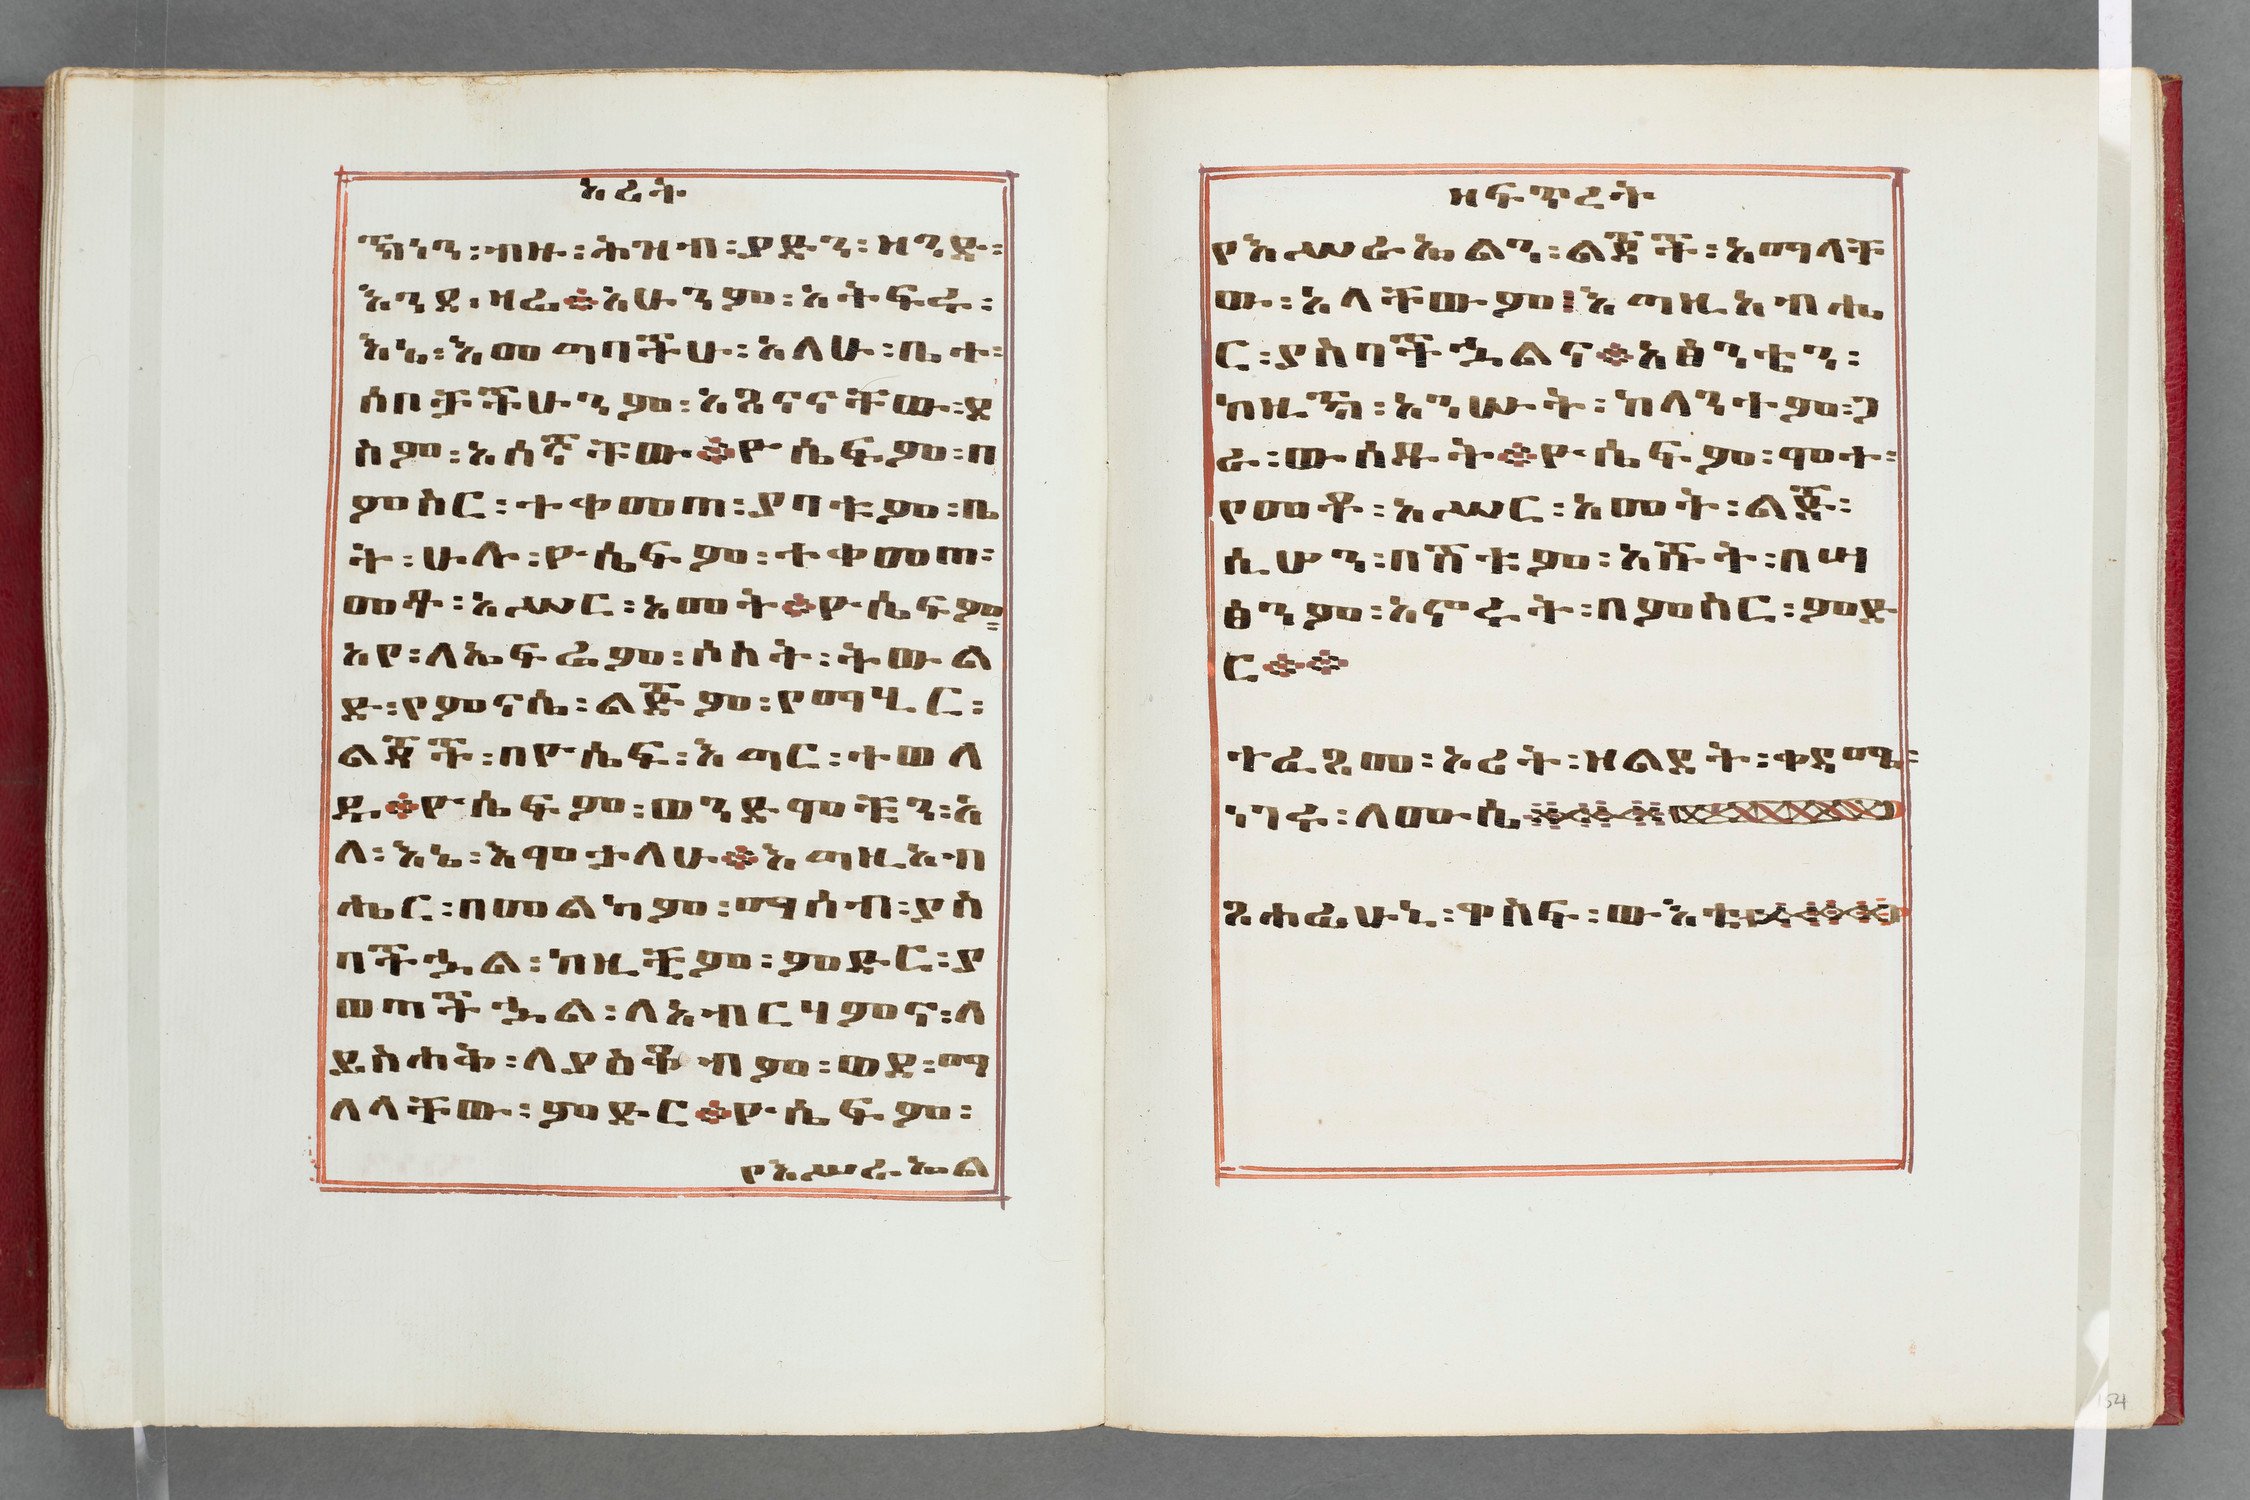 ኦሪት
ኽነን፡ብዙ፡ሕዝብ፡ያድን፡ዘንድ፡
እንደ፡ዛሬ።አሁንም፡አትፍሩ፡
እኔ፡እመግባችሁ፡አለሁ፡ቤተ፡
ሰቦቻችሁንም፡አጽናናቸው፡ደ
ስም፡አሰኛቸው።ዮሴፍም፡በ
ምስር፡ተቀመጠ፡ያባቱም፡ቤ
ት፡ሁሉ፡ዮሴፍም፡ተቀመጠ፡
መቶ፡አሥር፡አመት።ዮሴፍም
አየ፡ለኤፍሬም፡ሶስት፡ትውል
ድ፡የምናሴ፡ልጅም፡የማኂር፡
ልጆች፡በዮሴፍ፡እግር፡ተወለ
ዱ።ዮሴፍም፡ወንድሞቹን፡አ
ለ፡እኔ፡እሞታለሁ።እግዚአብ
ሔር፡በመልካም፡ማሰብ፡ያስ
ባችኋል፡ከዚችም፡ምድር፡ያ
ወጣችኋል፡ለአብርሃምና፡ለ
ይስሐቅ፡ለያዕቆብም፡ወደ፡ማ
ለላቸው፡ምድር።ዮሴፍም፡
የእሥራኤል
ዘፍጥረት
የእሥራኤልን፡ልጆች፡አማለቸ
ው፡አለቸውም፡እግዚአብሔ
ር፡ያስባችኋልና።አፅንቴን፡
ከዚኽ፡አንሡት፡ከላንተም፡ጋ
ራ፡ውሰዱት።ዮሴፍም፡ሞተ፡
የመቶ፡አሥር፡አመት፡ልጅ፡
ሲሆን፡በሽቱም፡አሹት፡በሣ
ፅንም፡አኖሩት፡በምስር፡ምድ
ር።።
ተፈጸመ፡ኦሪት፡ዘልደት፡ቀደማዊ፡
ነገሩ፡ለሙሴ።
ጸሐፊሁኒ፡ዋስፍ፡ውእቱ።